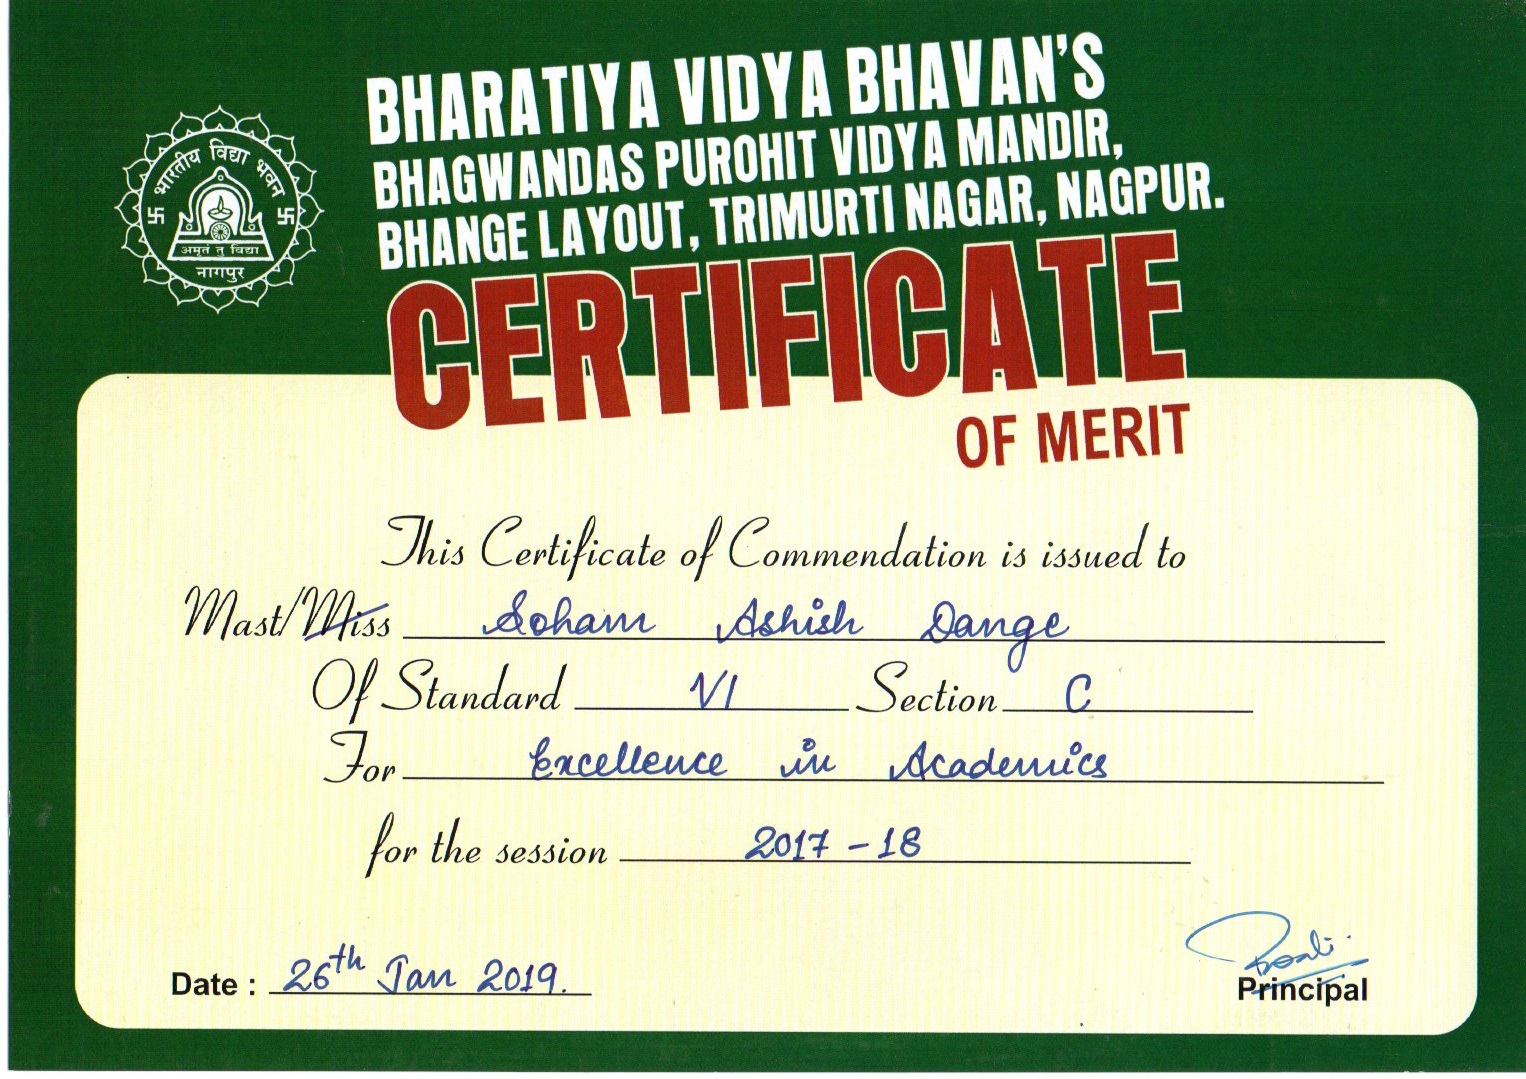 BHARATIYA VIDYA BHAVAN'S
BHAGWANDAS PUROHIT VIDYA MANDIR,
BHANGE LAYOUT, TRIMURTI NAGAR, NAGPUR.
भारतीय विद्या भवन
अमृतं तु विद्या
नागपुर
CERTIFICATE
OF MERIT
This Certificate of Commendation is issued to
Mast/Miss Soham Ashish Dange
Of Standard VI Section C
For Excellence in Academics
for the session 2017 - 18
Date : 26th Jan 2019.
Principal